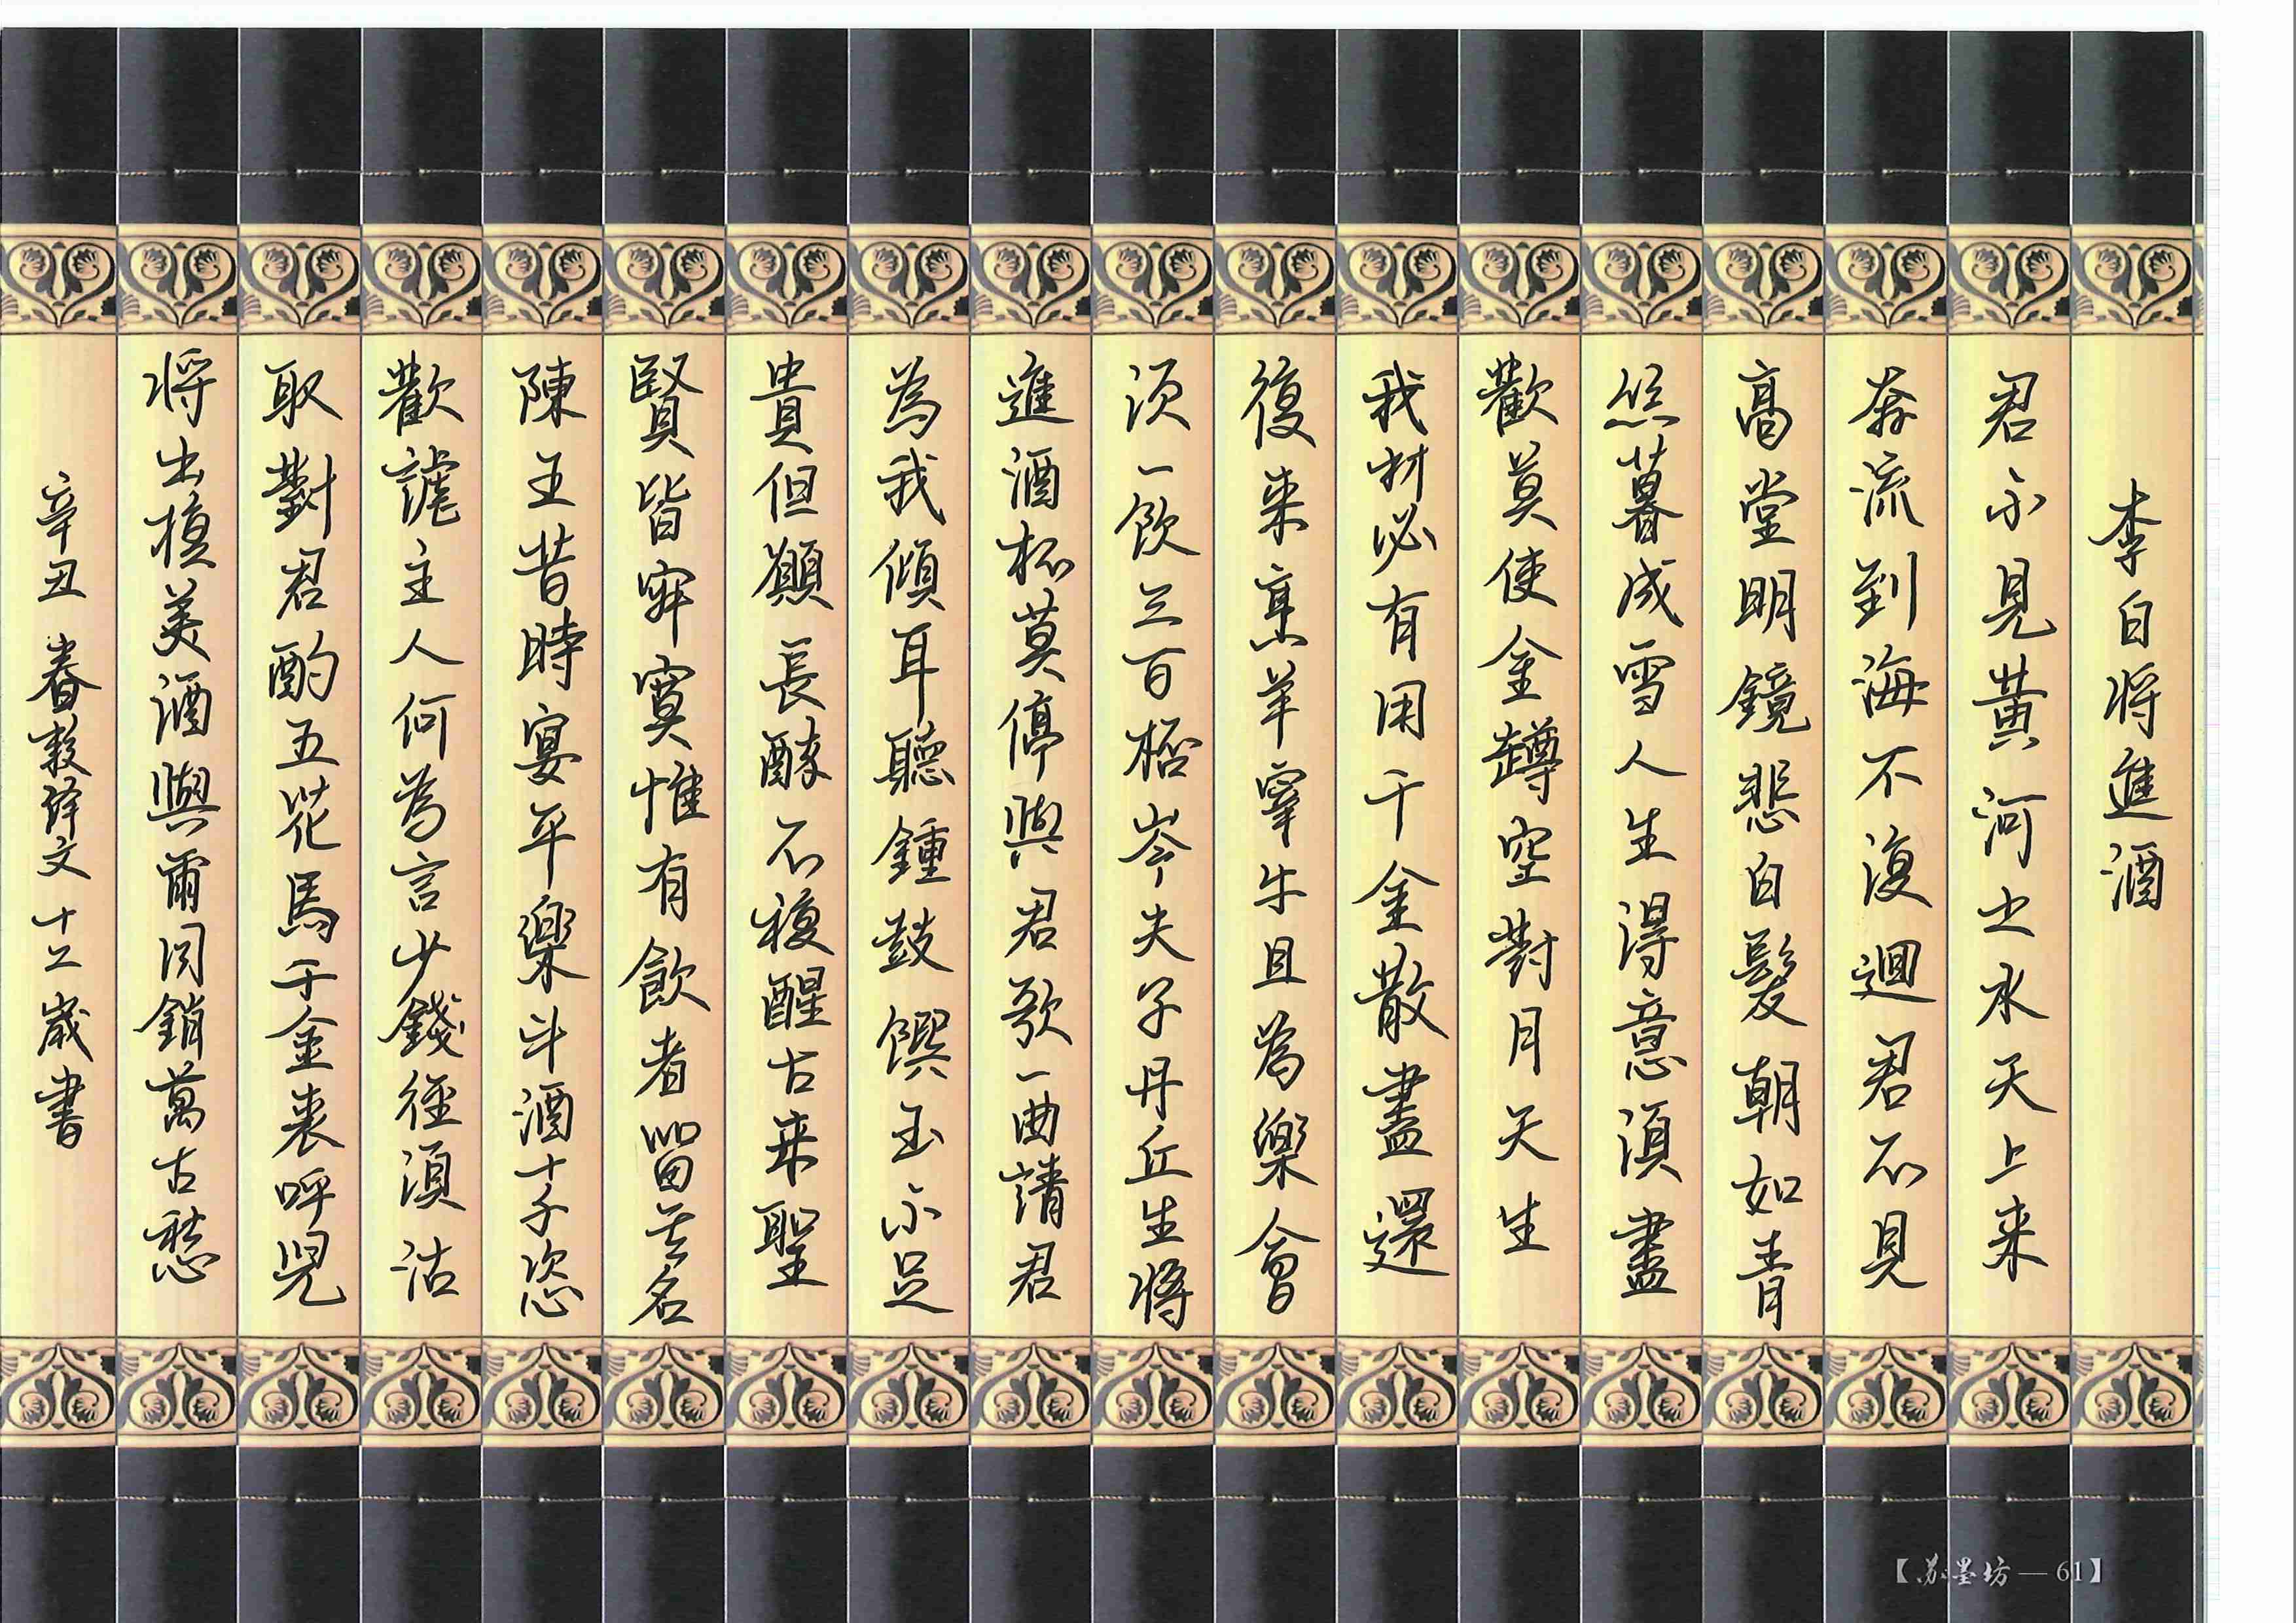 李白將進酒
君不見黃河之水天上來
奔流到海不復迴君不見
高堂明鏡悲白髮朝如青
絲暮成雪人生得意須盡
歡莫使金罇空對月天生
我材必有用千金散盡還
復來烹羊宰牛且為樂會
須一飲三百桮岑夫子丹丘生將
進酒杯莫停與君歌一曲請君
為我傾耳聽鍾鼓饌玉不足
貴但願長醉不複醒古來聖
賢皆寂寞惟有飲者留其名
陳王昔時宴平樂斗酒十千恣
歡謔主人何為言少錢徑須沽
取對君酌五花馬千金裘呼兒
將出換美酒與爾同銷萬古愁
辛丑春 文十二歲書
【苏墨坊—61】